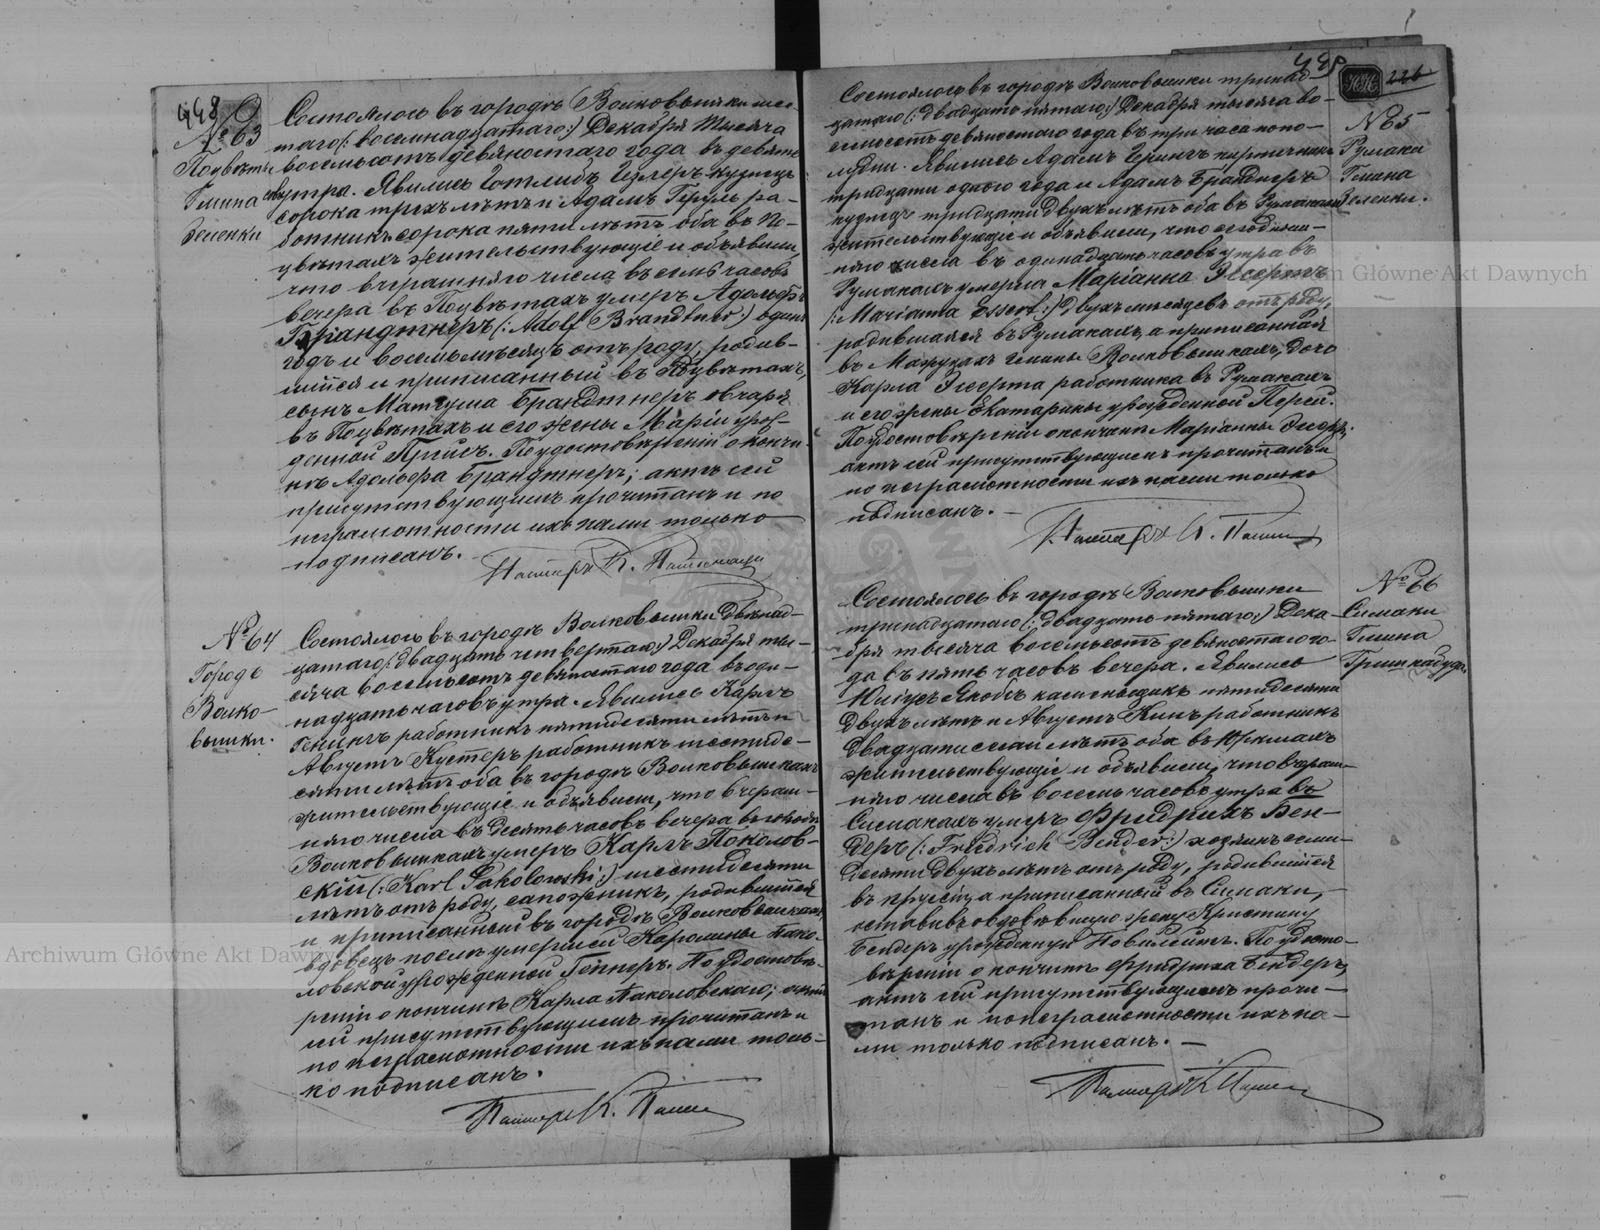 448
№ 63
Подвѣты
Гмина
Зеленки
Состоялось въ городѣ Волковышки шес-
таго (:восемнадцатаго:) Декабря тысяча
восемьсотъ девяностаго года въ девять
утра. Явились Готлибъ кузнецъ
сорока трехъ лѣтъ и Адамъ ра-
ботникъ сорока пяти лѣтъ оба въ По-
цвѣтахъ жительствующіе и объявили,
что вчерашняго числа въ семь часовъ
вечера въ Поцвѣтахъ умеръ Адольфъ
Брандтнеръ (: Adolf Brandtner :) одинъ
годъ и восемь мѣсяцъ отъ роду, родив-
шійся и приписанный въ Поцвѣтахъ,
сынъ Матеуша Брандтнеръ овчаря
въ Поцвѣтахъ и его жены Маріи урож-
денной По удостовѣреніи о кончи-
нѣ Адольфа Брандтнеръ; актъ сей
присутствующимъ прочитанъ и по
неграмотности ихъ нами только
подписанъ.
Пасторъ К.
№ 64
Городъ
Волко-
вышки.
Состоялось въ городѣ Волковышки двѣнад-
цатаго (:двадцать четвертаго:) Декабря ты-
сяча восемьсотъ девяностаго года въ оди-
надцать часовъ утра. Явились Карлъ
работникъ пятидесяти лѣтъ и
Августъ Кустеръ работникъ шестиде-
сяти лѣтъ оба въ городѣ Волковышкахъ
жительствующіе и объявили, что вчераш-
няго числа въ десять часовъ вечера въ городѣ
Волковышкахъ умеръ Карлъ Поколов-
скій (: Karl Pokolowski :) шестидесяти
лѣтъ отъ роду, сапожникъ, родившійся
и приписанный въ городѣ Волковышкахъ,
вдовецъ послѣ умершей Каролины Пако-
ловской урожденной По удостовѣ-
реніи о кончинѣ Карла Паколовскаго; актъ
сей присутствующимъ прочитанъ и
по неграмотности ихъ нами толь-
ко подписанъ.
Пасторъ К.
449
226
№ 65
Румаки
Гмина
Зеленки.
Состоялось въ городѣ Волковышки тринад-
цатаго (:двадцать пятаго:) Декабря тысяча во-
семьсотъ девяностаго года въ три часа попо-
лудни. Явились Адамъ
тридцати одного года и Адамъ Брандтнеръ
кузнецъ тридцати двухъ лѣтъ оба въ Румакахъ
жительствующіе и объявили, что сегодняш-
няго числа въ одинадцать часовъ утра въ
Румакахъ умерла Маріанна Эссертъ
(: Marianna Essert :) двухъ мѣсяцевъ отъ роду,
родившаяся въ Румакахъ, а приписанная
въ гмины Волковышкахъ, дочь
Карла Эссерта работника въ Румакахъ
и его жены Екатерины урожденной
По удостовѣреніи о кончинѣ Маріанны Эссертъ,
актъ сей присутствующимъ прочитанъ и
по неграмотности ихъ нами только
подписанъ. —
Пасторъ К.
№ 66
Симаки
Гмина
Гришкабуды.
Состоялось въ городѣ Волковышки
тринадцатаго (:двадцать пятаго:) Дека-
бря тысяча восемьсотъ девяностаго го-
да въ пять часовъ вечера. Явились
Юліусъ Якобъ каменьщикъ пятидесяти
двухъ лѣтъ и Августъ работникъ
двадцати семи лѣтъ оба въ
жительствующіе и объявили, что вчераш-
няго числа въ восемь часовъ утра въ
Симакахъ умеръ Фридрихъ Бен-
деръ (: Friedrich Bender :) хозяинъ семи-
десяти двухъ лѣтъ отъ роду, родившійся
въ пруссіи, а приписанный въ Симаки, —
оставивъ овдовѣвшую жену Кристину
Бендеръ урожденную По удосто-
вѣреніи о кончинѣ Фридриха Бендеръ,
актъ сей присутствующимъ прочи-
танъ и по неграмотности ихъ на-
ми только подписанъ. —
Пасторъ К.
Archiwum Główne Akt Dawnych
Archiwum Główne Akt Dawnych